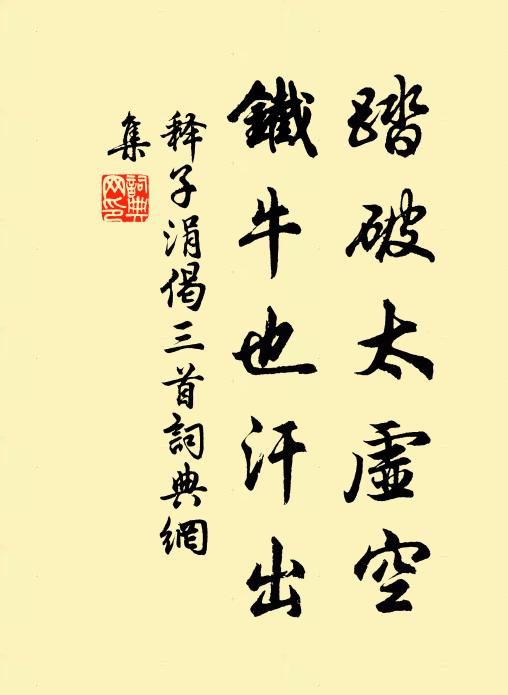 踏破太虛空
鐵牛也汗出
释子涓偈三首詞典網
集
詞典
网印